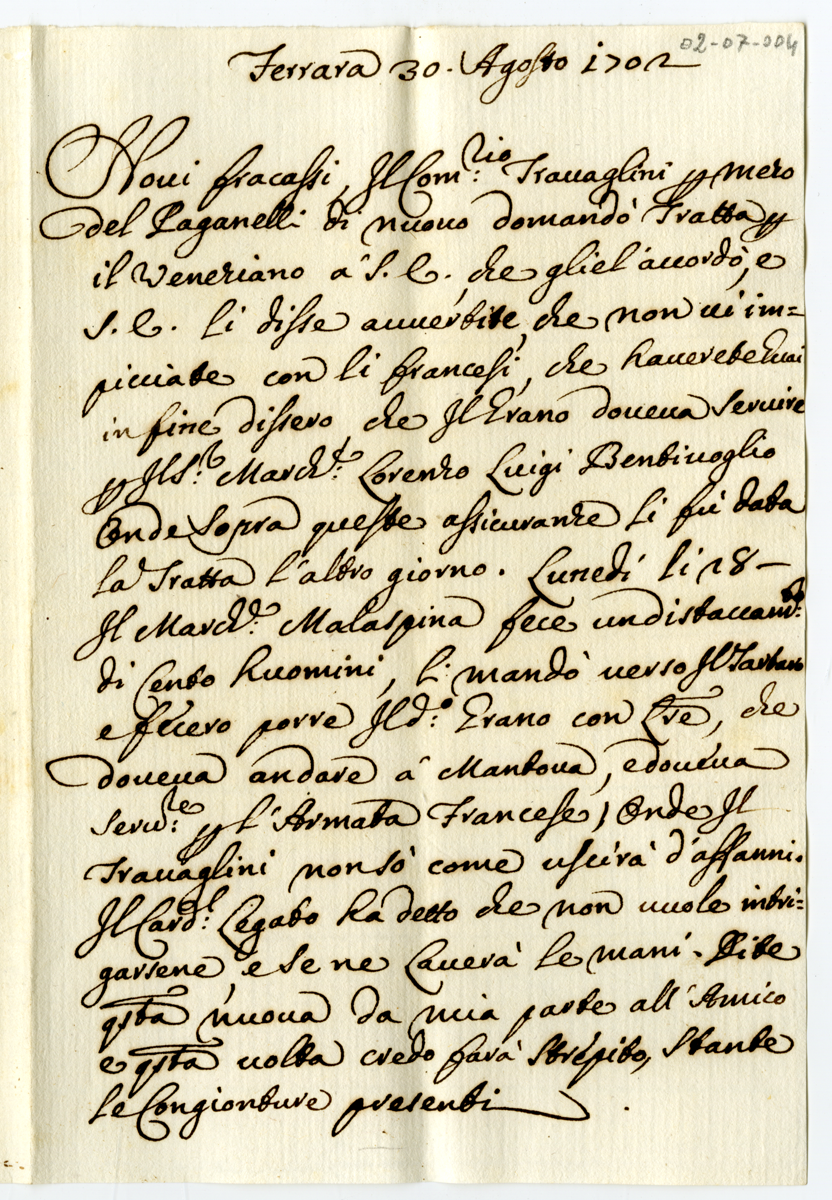 02-07-004
Ferrara 30. Agosto 1702
Noui fracassi, Il Com:rio Trauaglini p mezo
del Paganelli di nuouo domandò Tratta p
il Veneziano à S. E. che gliel'accordò, e
S. E. li disse auuertite, che non ui im=
picciate con li francesi, che hauerete guai
in fine dissero che Il Grano doueua seruire
p Il S:r March:e Lorenzo Luigi Bentiuoglio
Onde sopra queste assicuranze li fù data
la Tratta l'altro giorno. Lunedì li 28 –
Il March:e Malaspina fece un distaccam:to
di Cento huomini, li mandò uerso Il Tartaro
e fecero porre Il d:o Grano con Lre, che
doueua andare à Mantoua, e doueua
seru:re p l'Armata Francese, Onde Il
Trauaglini non sò come uscirà d'affanni.
Il Card:l Legato ha detto che non uuole intri=
garsene, e se ne lauerà le mani. Dite
qsta nuoua da mia parte all'Amico
e qsta uolta credo farà strepito, stante
le Congionture presenti.